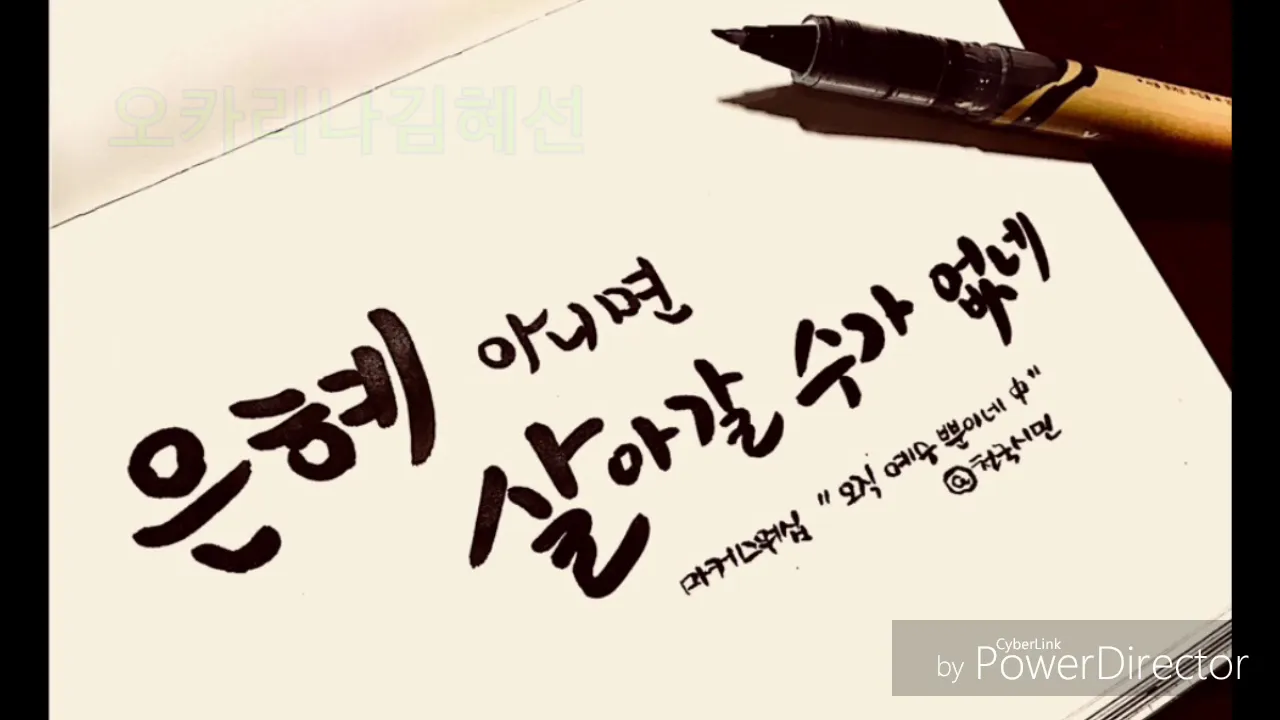 오카리나김혜선
은혜 아니면
살아갈 수가 없네
마커스워십 " 오직 예수 뿐이네 中 "
@천국시민
CyberLink
by PowerDirector